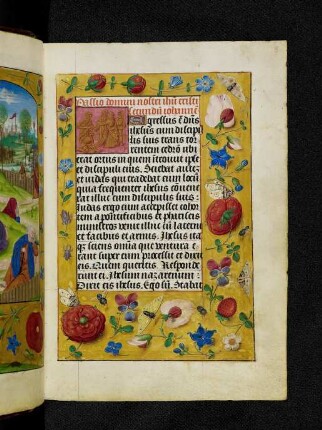 Passio domini nostri ihū cristi
secundū iohannē
Egressus ē dn̄s
ihesus cum discipu
lis suis trans tor
rentem cedrō ubi
erat ortus in quem itroiuit ipse
et discipuli eius. Sciebat autē
et iudas qui tradebat eum locū
quia frequenter ihesus cōuene
rat illuc cum discipulis suis
Iudas ergo cum accepisset cohor
tem a pontificibus et phariseis
ministros venit illuc cū laterns
et facibus et armis. Ihesus ita
qȝ sciens omnia que ventura e
rant super eum processit et dixit
eis. Quem queritis. Responde
runt ei. Ihesum nazarenum.
Dixit eis ihesus. Ego sū. Stabat